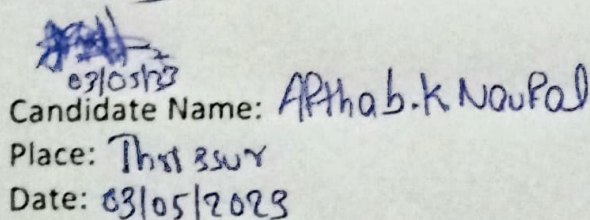 03/05/23
Candidate Name: Apthab.k Noufal
Place: Thrissur
Date: 03/05/2023